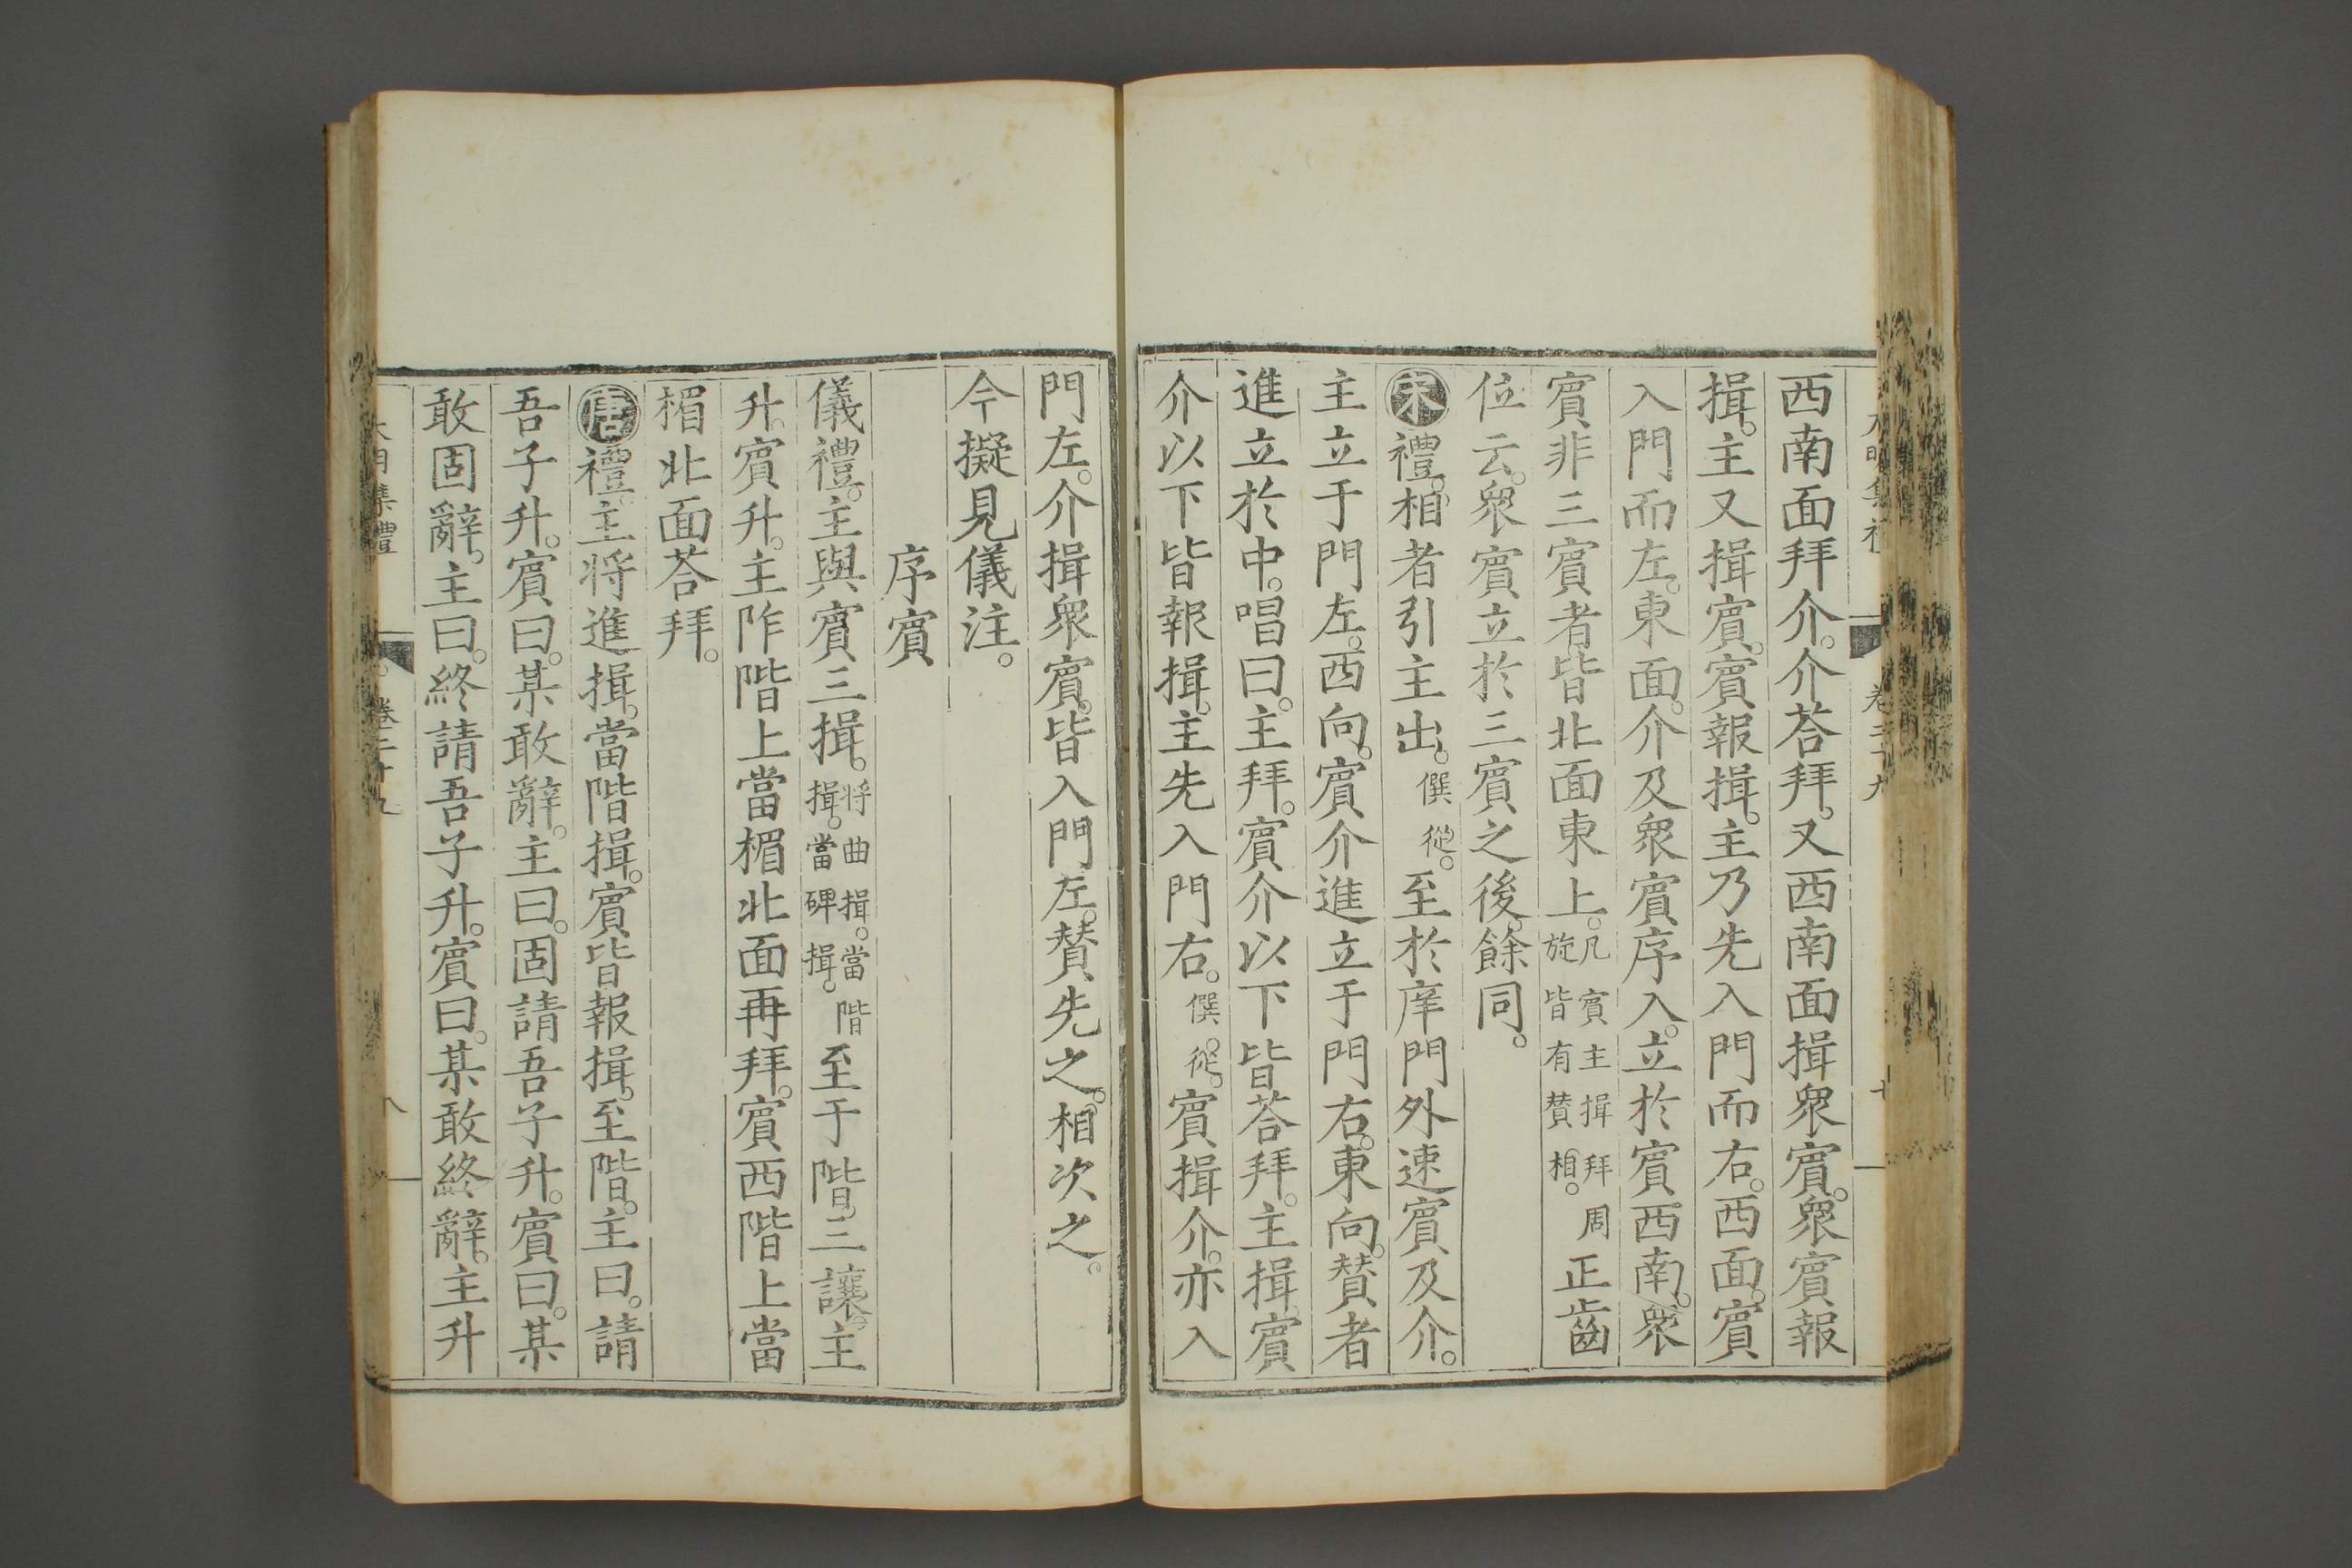 西南面拜介。介荅拜。又西南面揖衆賔。衆賔報
揖。主又揖賔。賔報揖。主乃先入門而右。西面。賔
入門而左。東面。介及衆賔序入。立於賔西南。衆
賔非三賔者。皆北面東上。凡賔主揖拜周旋皆有賛相。正齒
位云。衆賔立於三賔之後。餘同。
宋禮。相者引主出。僎從。至於庠門外速賔及介。
主立于門左。西向。賔介進立于門右。東向。賛者
進立於中。唱曰。主拜。賔介以下皆荅拜。主揖。賔
介以下皆報揖。主先入門右。僎從。賔揖介。亦入
門左。介揖衆賔。皆入門左。賛先之。相次之。
今擬見儀注。
序賔
儀禮。主與賔三揖。將曲揖。當階揖。當碑揖。至于階。三讓。主
升。賔升。主阼階上當楣北面再拜。賔西階上當
楣北面荅拜。
唐禮。主將進揖。當階揖。賔皆報揖。至階。主曰。請
吾子升。賔曰。某敢辭。主曰。固請吾子升。賔曰。某
敢固辭。主曰。終請吾子升。賔曰。某敢終辭。主升
大明集禮 卷二十九 八